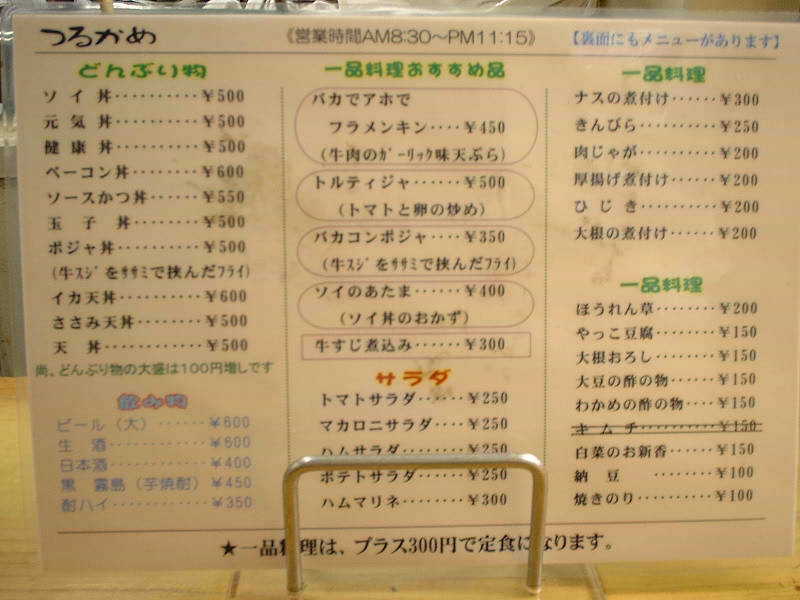 つるかめ
《営業時間AM8:30～PM11:15》
【裏面にもメニューがあります】
どんぶり物
ソイ丼‥‥‥‥‥¥500
元気丼‥‥‥‥‥¥500
健康丼‥‥‥‥‥¥500
ベーコン丼‥‥‥‥¥600
ソースかつ丼‥‥‥¥550
玉子丼‥‥‥‥‥¥500
ポジャ丼‥‥‥‥‥¥500
(牛スジをササミで挟んだフライ)
イカ天丼‥‥‥‥‥¥600
ささみ天丼‥‥‥‥¥500
天丼‥‥‥‥‥¥500
尚、どんぶり物の大盛は100円増しです
飲み物
ビール（大）‥‥‥¥600
生酒‥‥‥‥‥¥600
日本酒‥‥‥‥‥¥400
黒霧島（芋焼酎）¥450
酎ハイ‥‥‥‥‥¥350
一品料理おすすめ品
バカでアホで
フラメンキン‥‥¥450
(牛肉のガーリック味天ぷら)
トルティジャ‥‥‥¥500
(トマトと卵の炒め)
バカコンポジャ‥‥¥350
(牛スジをササミで挟んだフライ)
ソイのあたま‥‥‥¥400
(ソイ丼のおかず)
牛すじ煮込み‥‥‥¥300
サラダ
トマトサラダ‥‥‥¥250
マカロニサラダ‥‥¥250
ハムサラダ‥‥‥‥¥250
ポテトサラダ‥‥‥¥250
ハムマリネ‥‥‥‥¥300
一品料理
ナスの煮付け‥‥‥¥300
きんぴら‥‥‥‥‥¥250
肉じゃが‥‥‥‥‥¥200
厚揚げ煮付け‥‥‥¥200
ひじき‥‥‥‥‥¥200
大根の煮付け‥‥‥¥200
一品料理
ほうれん草‥‥‥‥¥200
やっこ豆腐‥‥‥‥¥150
大根おろし‥‥‥‥¥150
大豆の酢の物‥‥‥¥150
わかめの酢の物‥‥¥150
キムチ‥‥‥‥‥¥150
白菜のお新香‥‥‥¥150
納豆‥‥‥‥¥100
焼きのり‥‥‥‥‥¥100
★一品料理は、プラス300円で定食になります。